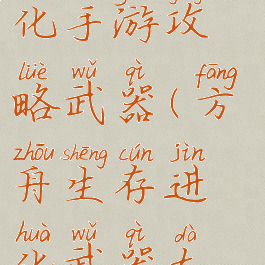 化手游攻
lüè wǔ qì fāng
略武器(方
zhōu shēng cún jìn
舟生存进
huà wǔ qì dà
化武器大